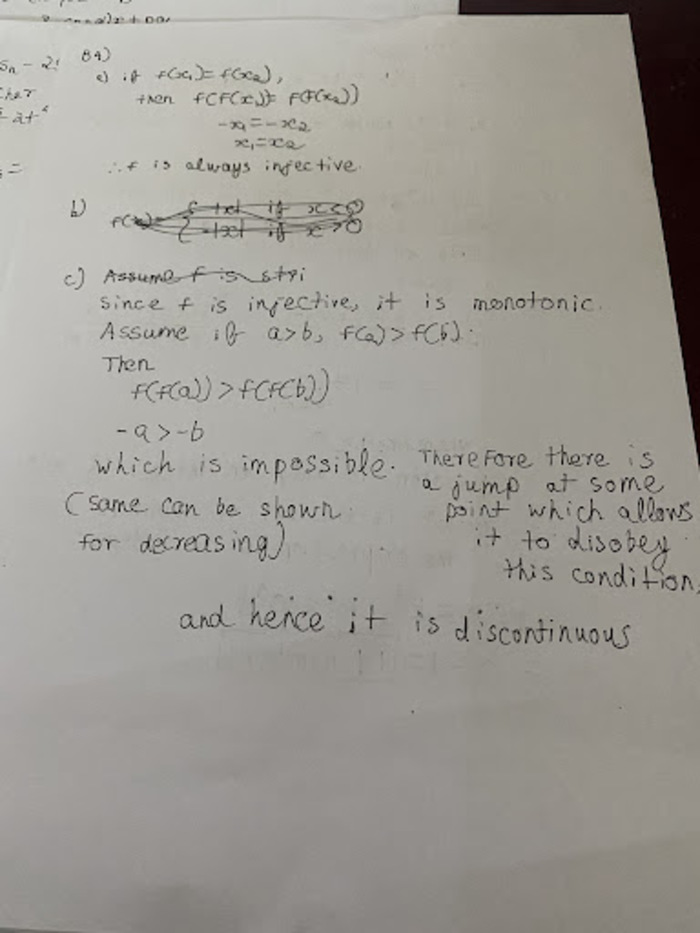 B4)
a) if f(x₁) = f(x₂),
then f(f(x₁)) = f(f(x₂))
-x₁ = -x₂
x₁ = x₂
∴ f is always injective.
b)
c) Assume f is stri
Since f is injective, it is monotonic.
Assume if a>b, f(a) > f(b).
Then
f(f(a)) > f(f(b))
-a > -b
which is impossible.
(same can be shown
for decreasing)
Therefore there is
a jump at some
point which allows
it to disobey
this condition,
and hence it is discontinuous